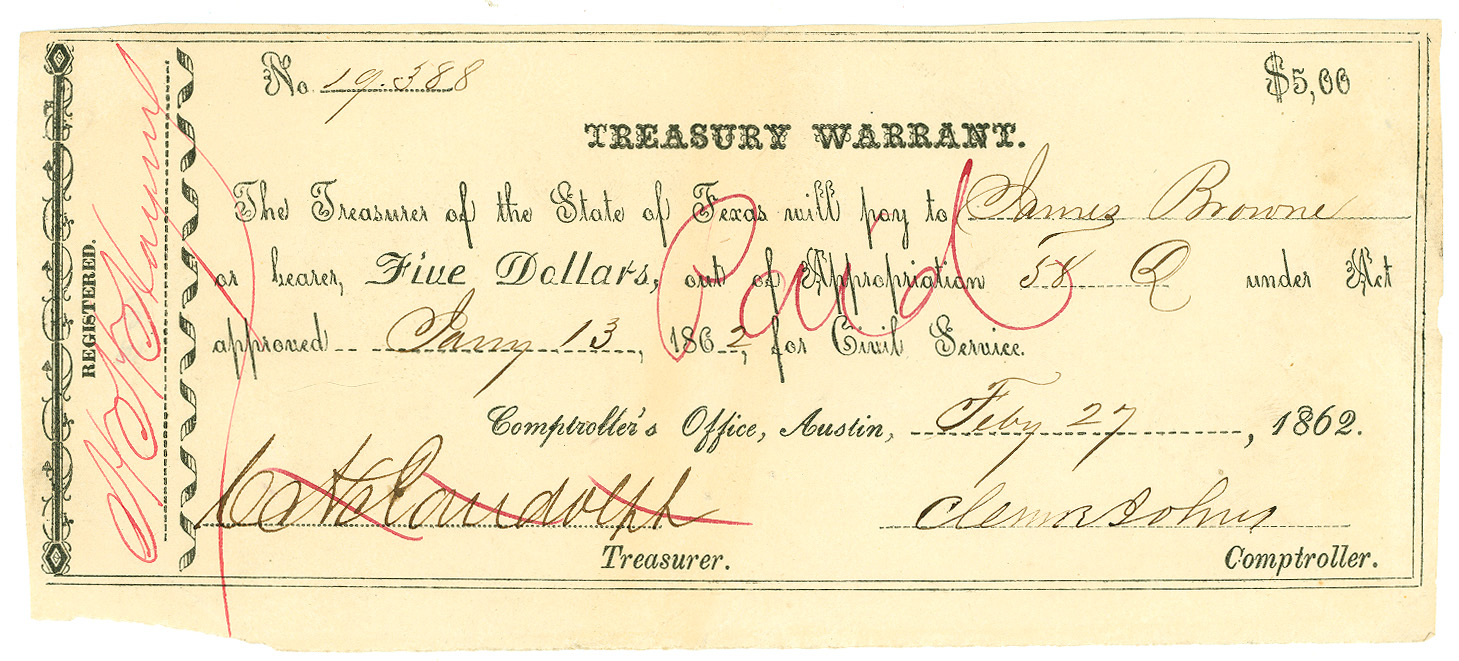 No. 19.388 $5,00
TREASURY WARRANT.
The Treasurer of the State of Texas will pay to James Browne
or bearer, Five Dollars, out of Appropriation 58 Q under Act
approved Jany 13, 1862, for Civil Service.
Paid
Comptroller's Office, Austin, Feby 27, 1862.
C H Randolph Clem R Johns
Treasurer. Comptroller.
REGISTERED.